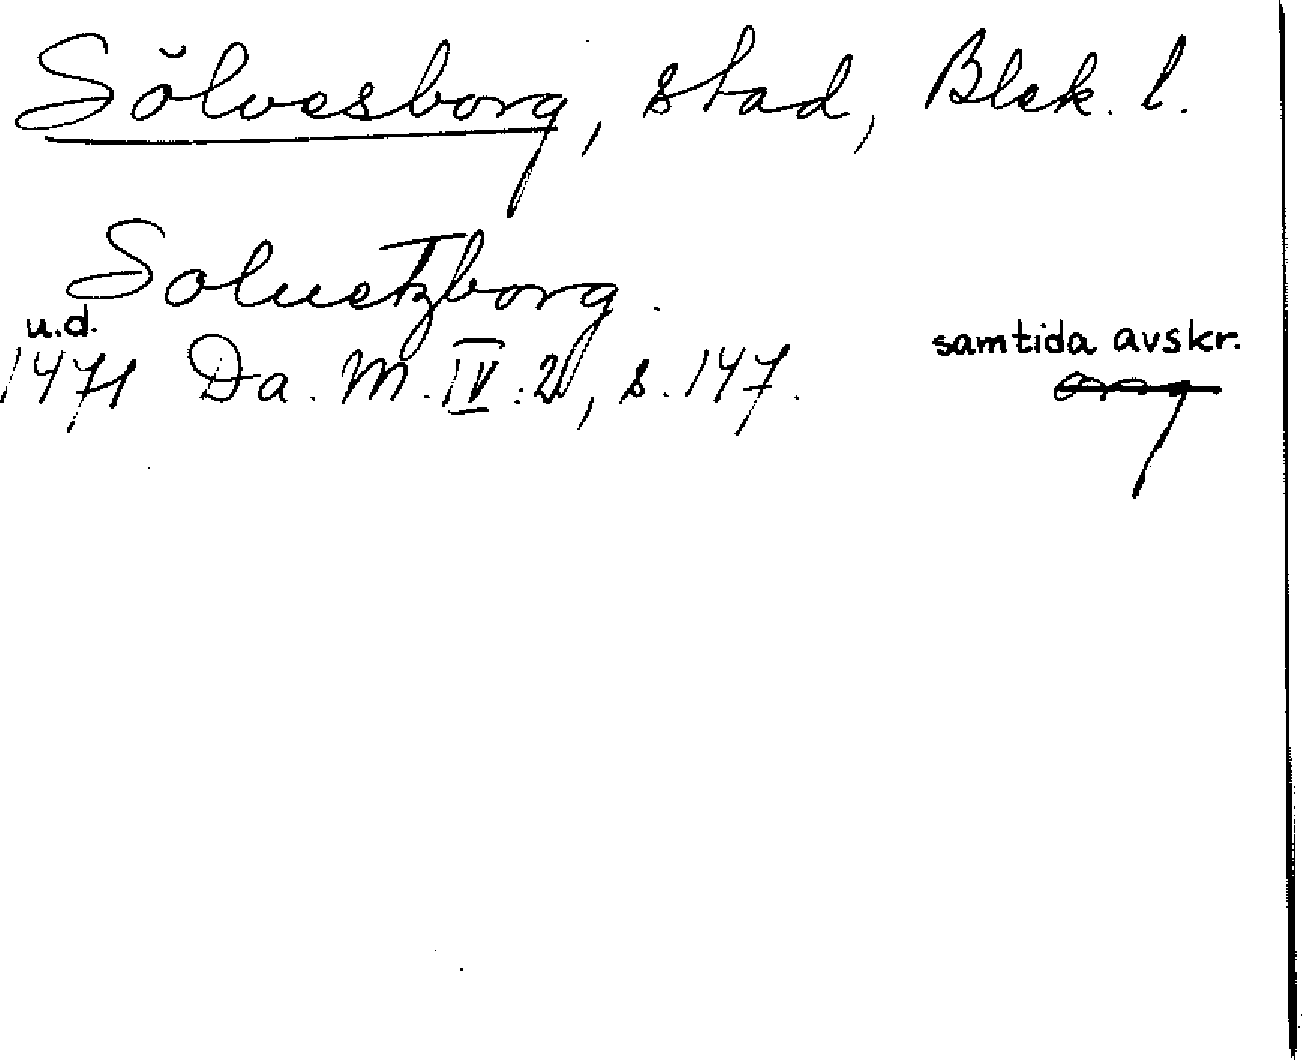 Sölvesborg, stad, Blek. l.
Soluetzborg.
u.d.
1471 Da. M. IV:2, s. 147. samtida avskr.
orig